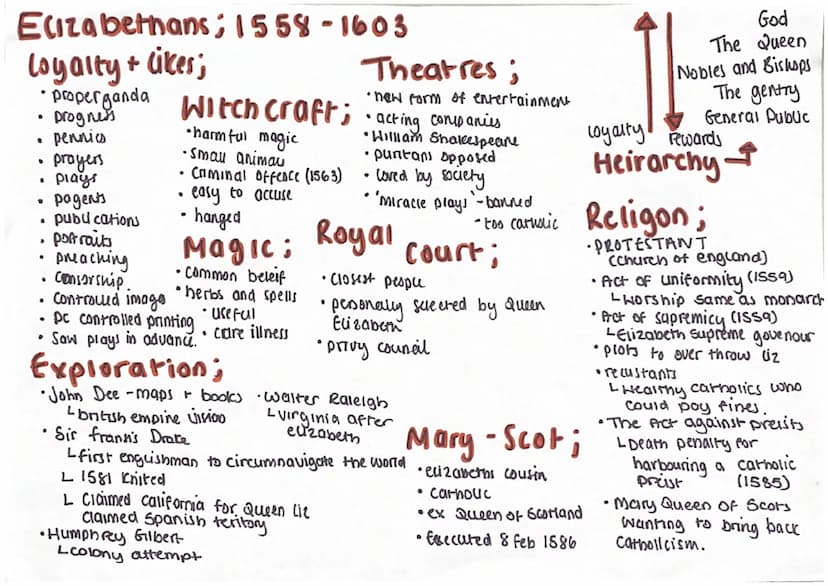 Elizabethans; 1558 - 1603
Loyalty + Likes;
• properganda
• progress
• pennies
• prayers
• plays
• pagents
• publications
• portraits
• preaching
• censorship.
• controlled image
• pc controlled printing
• saw plays in advance.
Witchcraft;
• harmful magic
• small animal
• Criminal offence (1563)
• easy to accuse
• hanged
Magic;
• common beleif
• herbs and spells
• useful
• cure illness
Theatres;
• new form of entertainment
• acting companies
• William Shakespeare
• puritans opposed
• loved by society
• 'Miracle plays' - banned
- too catholic
Royal Court;
• closest people
• personally selected by Queen
Elizabeth
• privy council
God
The Queen
Nobles and Bishops
The gentry
General Public
Loyalty
Rewards
Heirarchy
Religon;
• PROTESTANT
(church of england)
• Act of uniformity (1559)
↳ worship same as monarch
• Act of supremicy (1559)
↳ Elizabeth supreme govenour
• plots to over throw liz
• recustants
↳ Wealthy catholics who
could pay fines.
• The Act against preists
↳ Death penalty for
harbouring a catholic
preist (1585)
• Mary Queen of Scots
wanting to bring back
catholicism.
Exploration;
• John Dee - maps + books
↳ british empire vision
• Sir Francis Drake
↳ first englishman to circumnavigate the world
↳ 1581 knited
↳ claimed california for Queen liz
claimed spanish teritory
• Humphrey Gilbert
↳ colony attempt
• Walter Raleigh
↳ virginia after
elizabeth
Mary - Scot;
• elizabeths cousin
• catholic
• ex Queen of Scotland
• Executed 8 Feb 1586